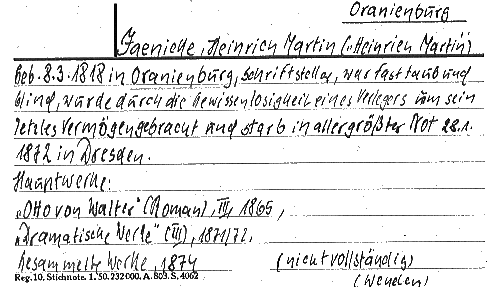 Oranienburg
Jaenicke, Heinrich Martin („Heinrich Martin")
Geb. 8.3.1818 in Oranienburg, Schriftsteller, war fast taub und
blind, wurde durch die Gewissenlosigkeit eines Verlegers um sein
letztes Vermögen gebracht und starb in allergrößter Not 28.1.
1872 in Dresden.
Hauptwerke:
„Otto von Walter" (Roman), III, 1865,
„Dramatische Werke" (III), 1871/72.
Gesammelte Werke, 1874 (nicht vollständig)
Reg. 10. Stichnote. 1. 50. 232000. A. 803. S. 4062
(Wenden)